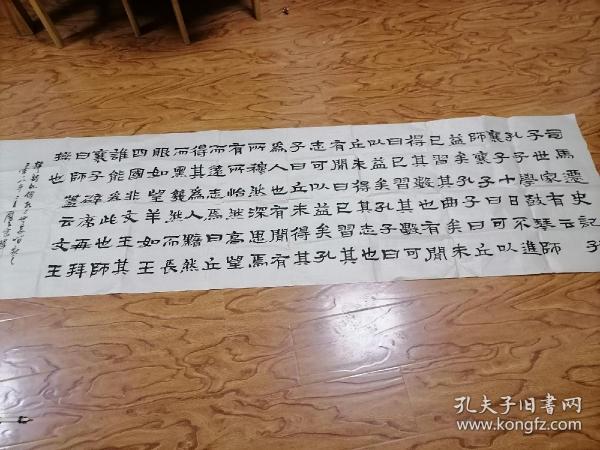 司馬遷史記孔
子世家有云
孔子學鼓琴師
襄子十日不進
師襄子曰可以
益矣孔子曰丘
已習其曲矣未
得其數也有間
曰已習其數可
以益矣孔子曰
丘未得其志也
有間曰已習其
志可以益矣孔
子曰丘未得其
為人也有間有
所穆然深思焉
有所怡然高望
而遠志焉曰丘
得其為人黯然
而黑幾然而長
眼如望羊如王
四國非文王其
誰能為此也師
襄子辟席再拜
曰師蓋云文王
操也
孔夫子旧書网
www.kongfz.com